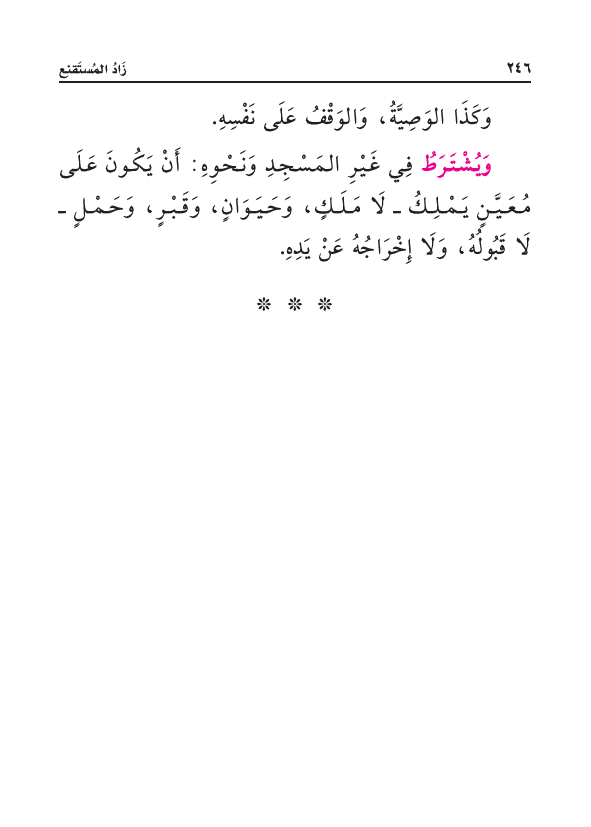 ٢٤٦
زَادُ المُستَقنِع
وَكَذَا الوَصِيَّةُ، وَالوَقْفُ عَلَى نَفْسِهِ.
وَيُشْتَرَطُ فِي غَيْرِ المَسْجِدِ وَنَحْوِهِ: أَنْ يَكُونَ عَلَى
مُعَيَّنٍ يَمْلِكُ ـ لَا مَلَكٍ، وَحَيَوَانٍ، وَقَبْرٍ، وَحَمْلٍ ـ
لَا قَبُولُهُ، وَلَا إِخْرَاجُهُ عَنْ يَدِهِ.
❊ ❊ ❊